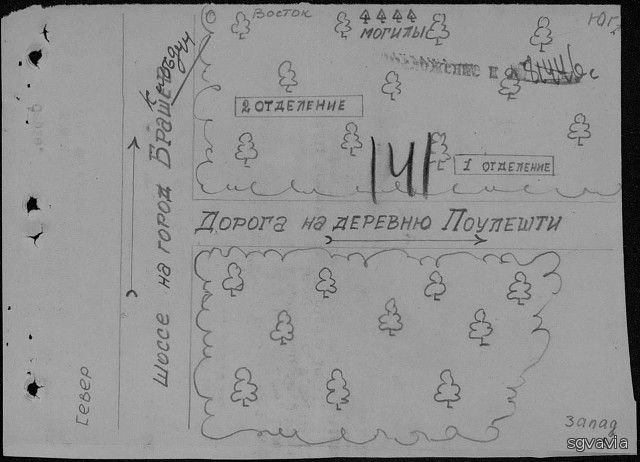 Восток
Юг
МОГИЛЫ
2 ОТДЕЛЕНИЕ
141
1 ОТДЕЛЕНИЕ
Дорога на деревню Поулешти
шоссе на город
Север
Запад
sgvavia